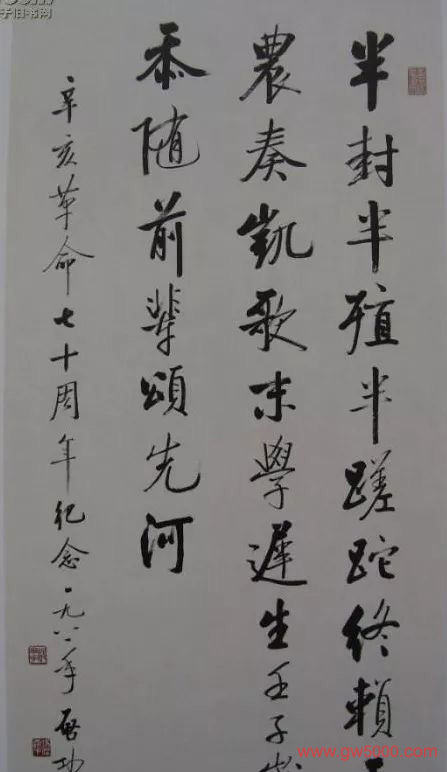 半封半殖半蹉跎终賴
農奏凱歌末學遲生壬子
忝随前輩頌先河
辛亥革命七十周年纪念一九八一年启功
www.gw5000.com